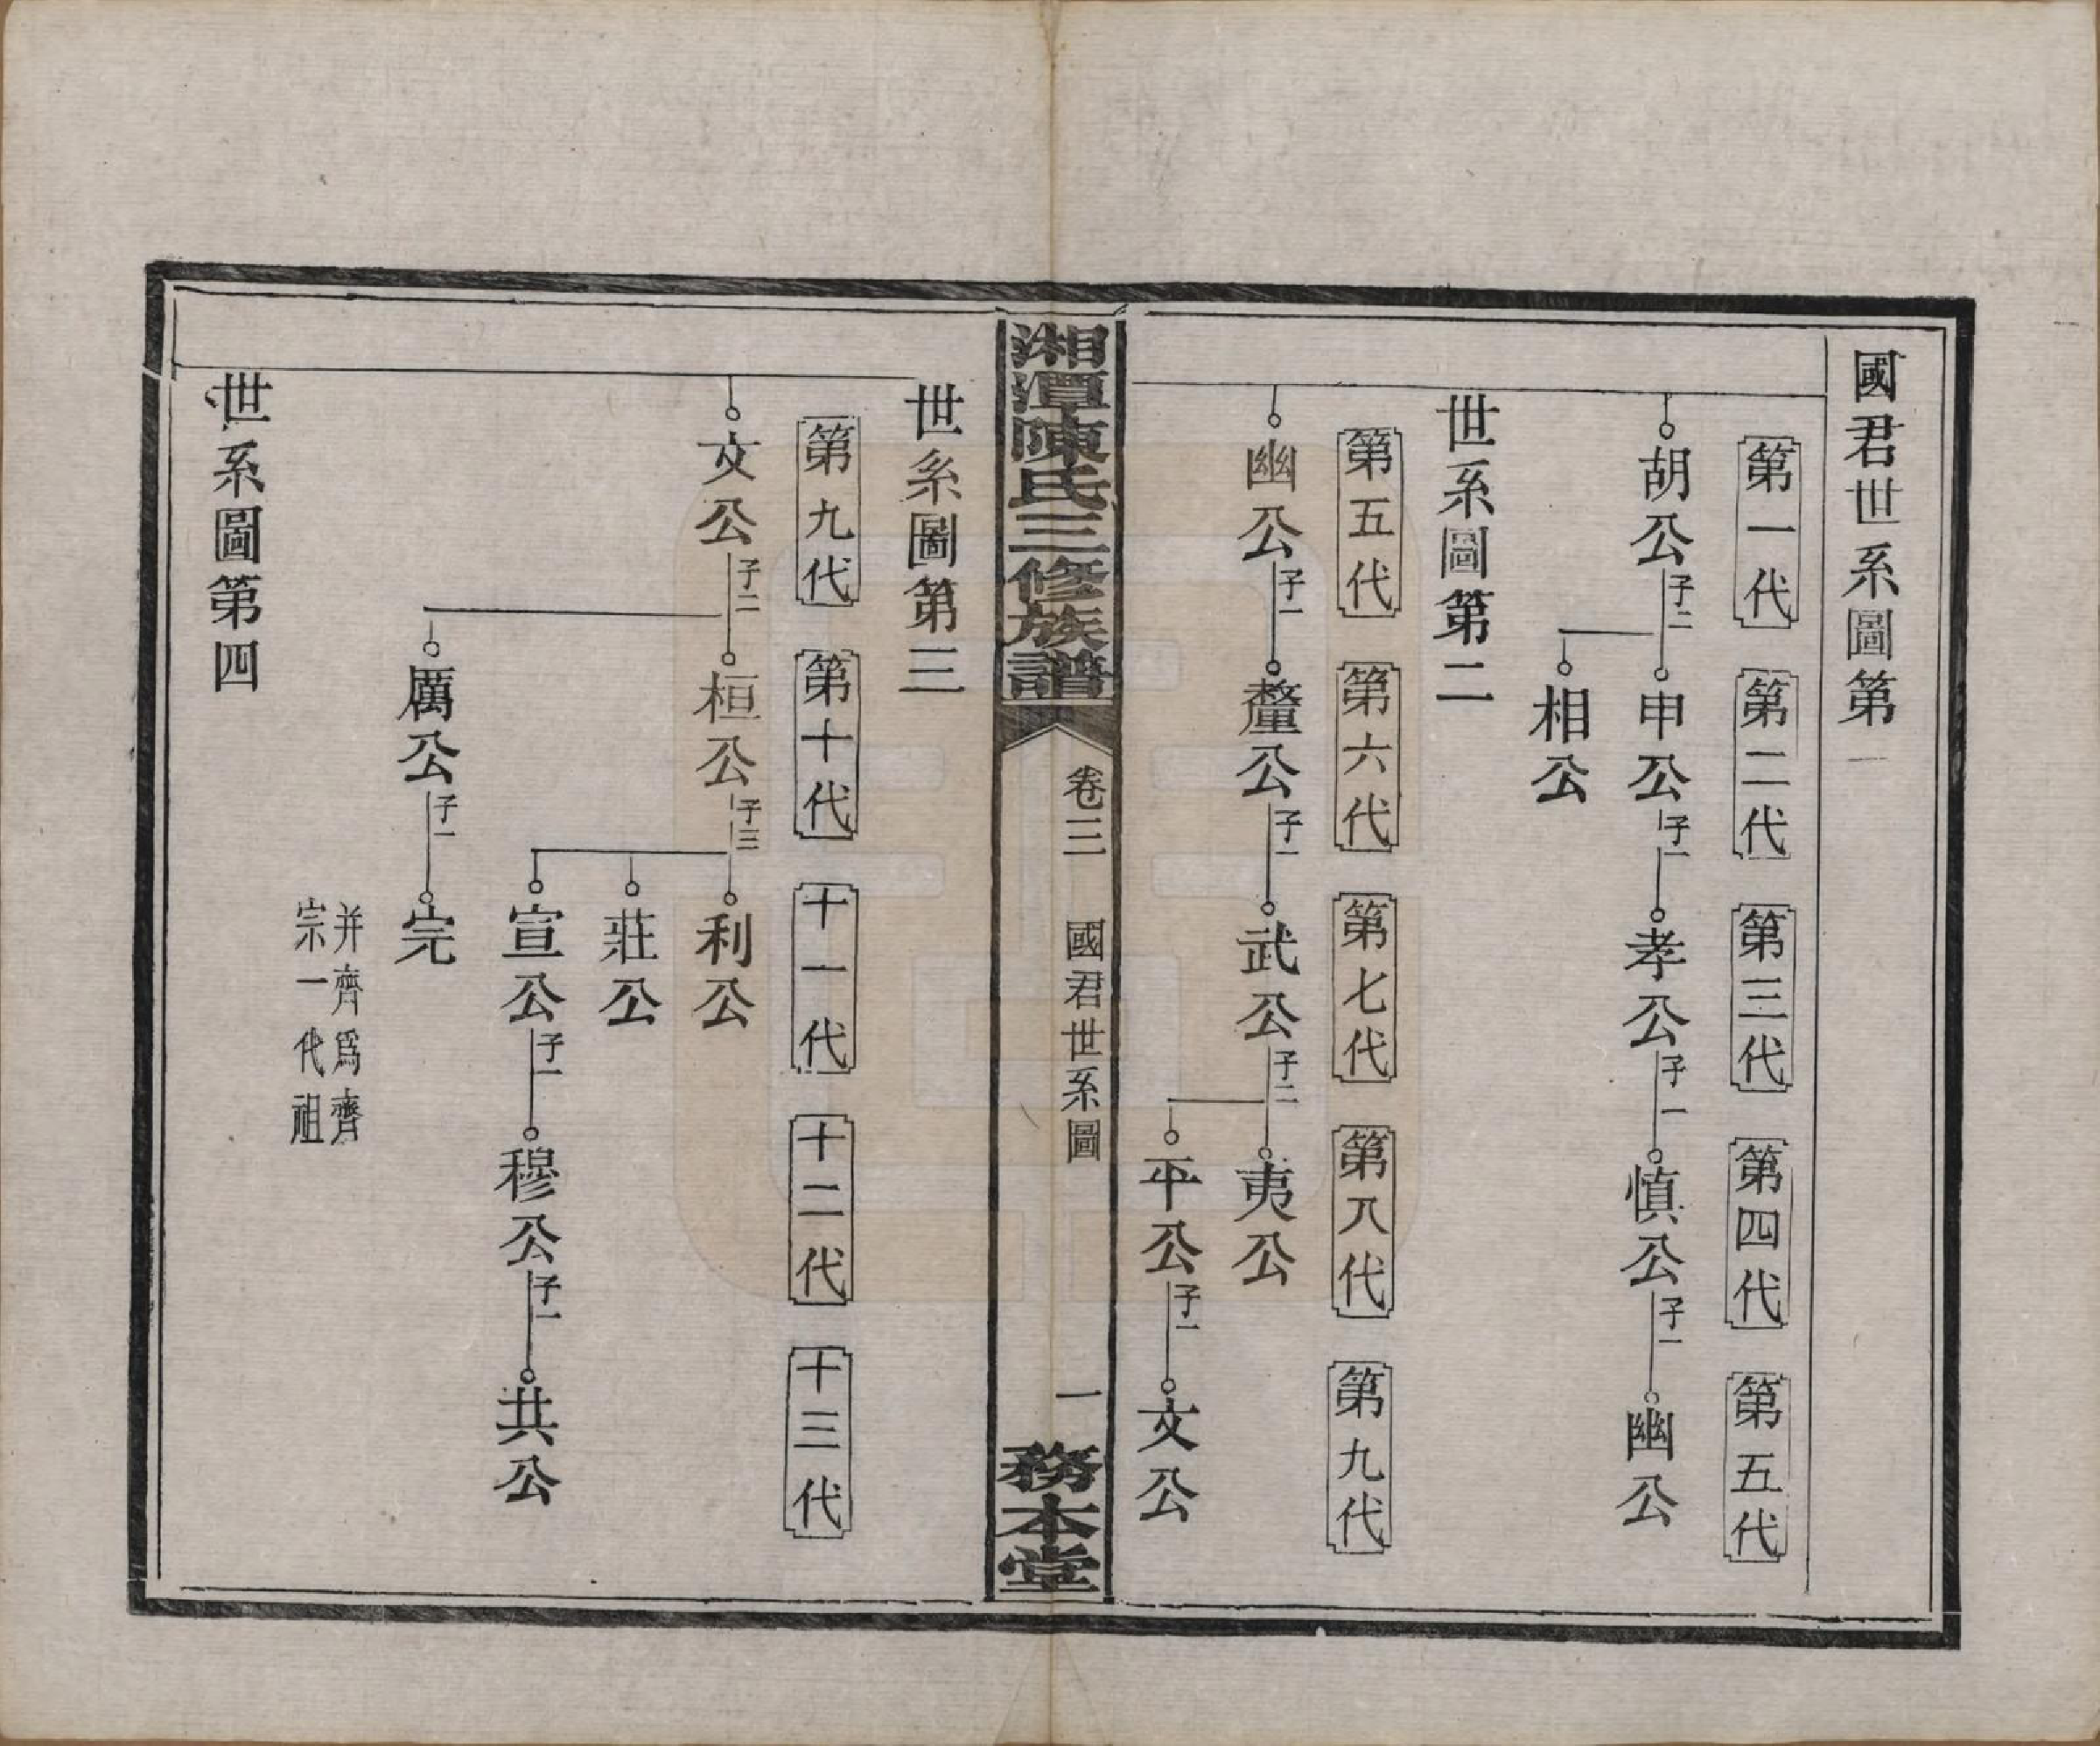 國君世系圖第一
第一代 第二代 第三代 第四代 第五代
胡公 子二 申公 子一 孝公 子一 慎公 子一 幽公
相公
世系圖第二
第五代 第六代 第七代 第八代 第九代
幽公 子一 釐公 子一 武公 子二 夷公
平公 子一 文公
湘潭陳氏三修族譜 卷三 國君世系圖 一 務本堂
世系圖第三
第九代 第十代 十一代 十二代 十三代
文公 子二 桓公 子三 利公
莊公
宣公 子一 穆公 子一 共公
厲公 子一 完
并齊爲齊
宗一代祖
世系圖第四